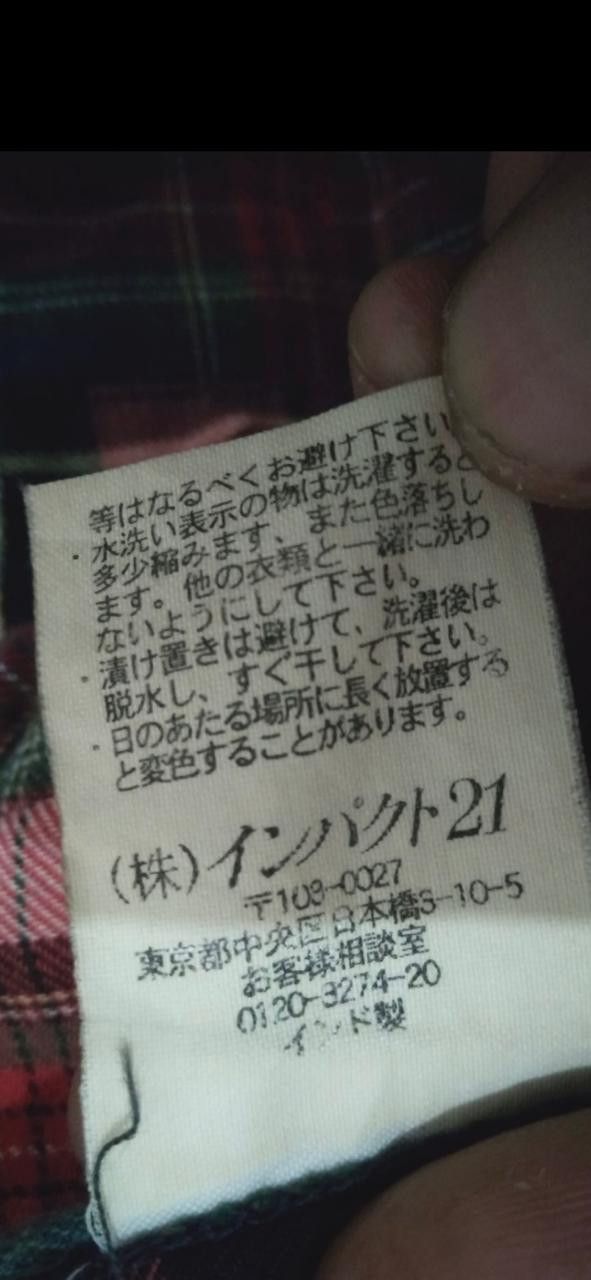 等はなるべくお避け下さい
・水洗い表示の物は洗濯すると
多少縮みます、また色落ちし
ます。他の衣類と一緒に洗わ
ないようにして下さい。
・漬け置きは避けて、洗濯後は
脱水し、すぐ干して下さい。
・日のあたる場所に長く放置する
と変色することがあります。
(株)インパクト21
〒103-0027
東京都中央区日本橋3-10-5
お客様相談室
0120-3274-20
インド製